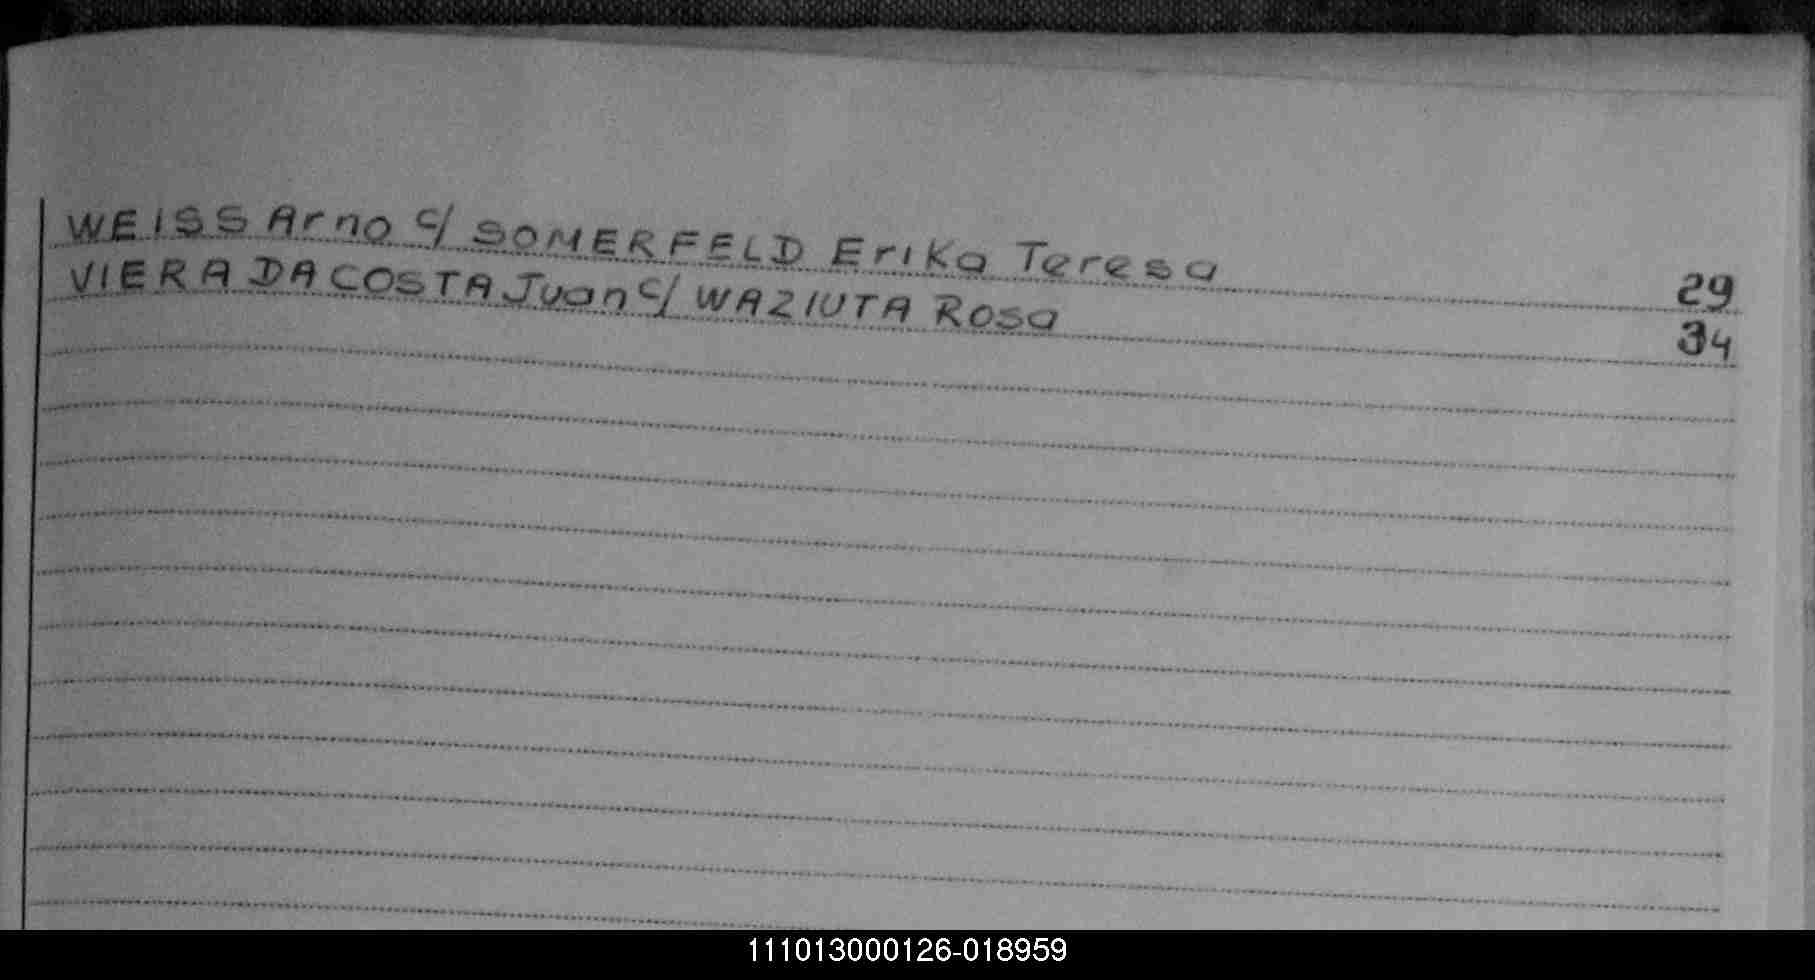 WEISS Arno c/ SOMERFELD Erika Teresa 29
VIERA DA COSTA Juan c/ WAZIUTA Rosa 34
111013000126-018959